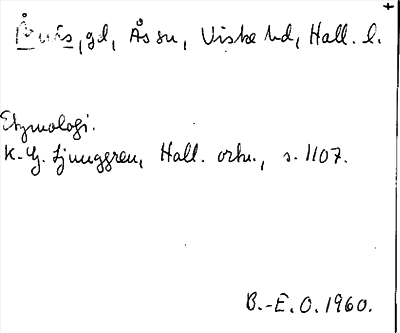 Årnäs, gd, Ås sn, Viske hd, Hall. l.
Etymologi.
K.-G. Ljunggren, Hall. ortn., s. 1107.
B.-E. O. 1960.